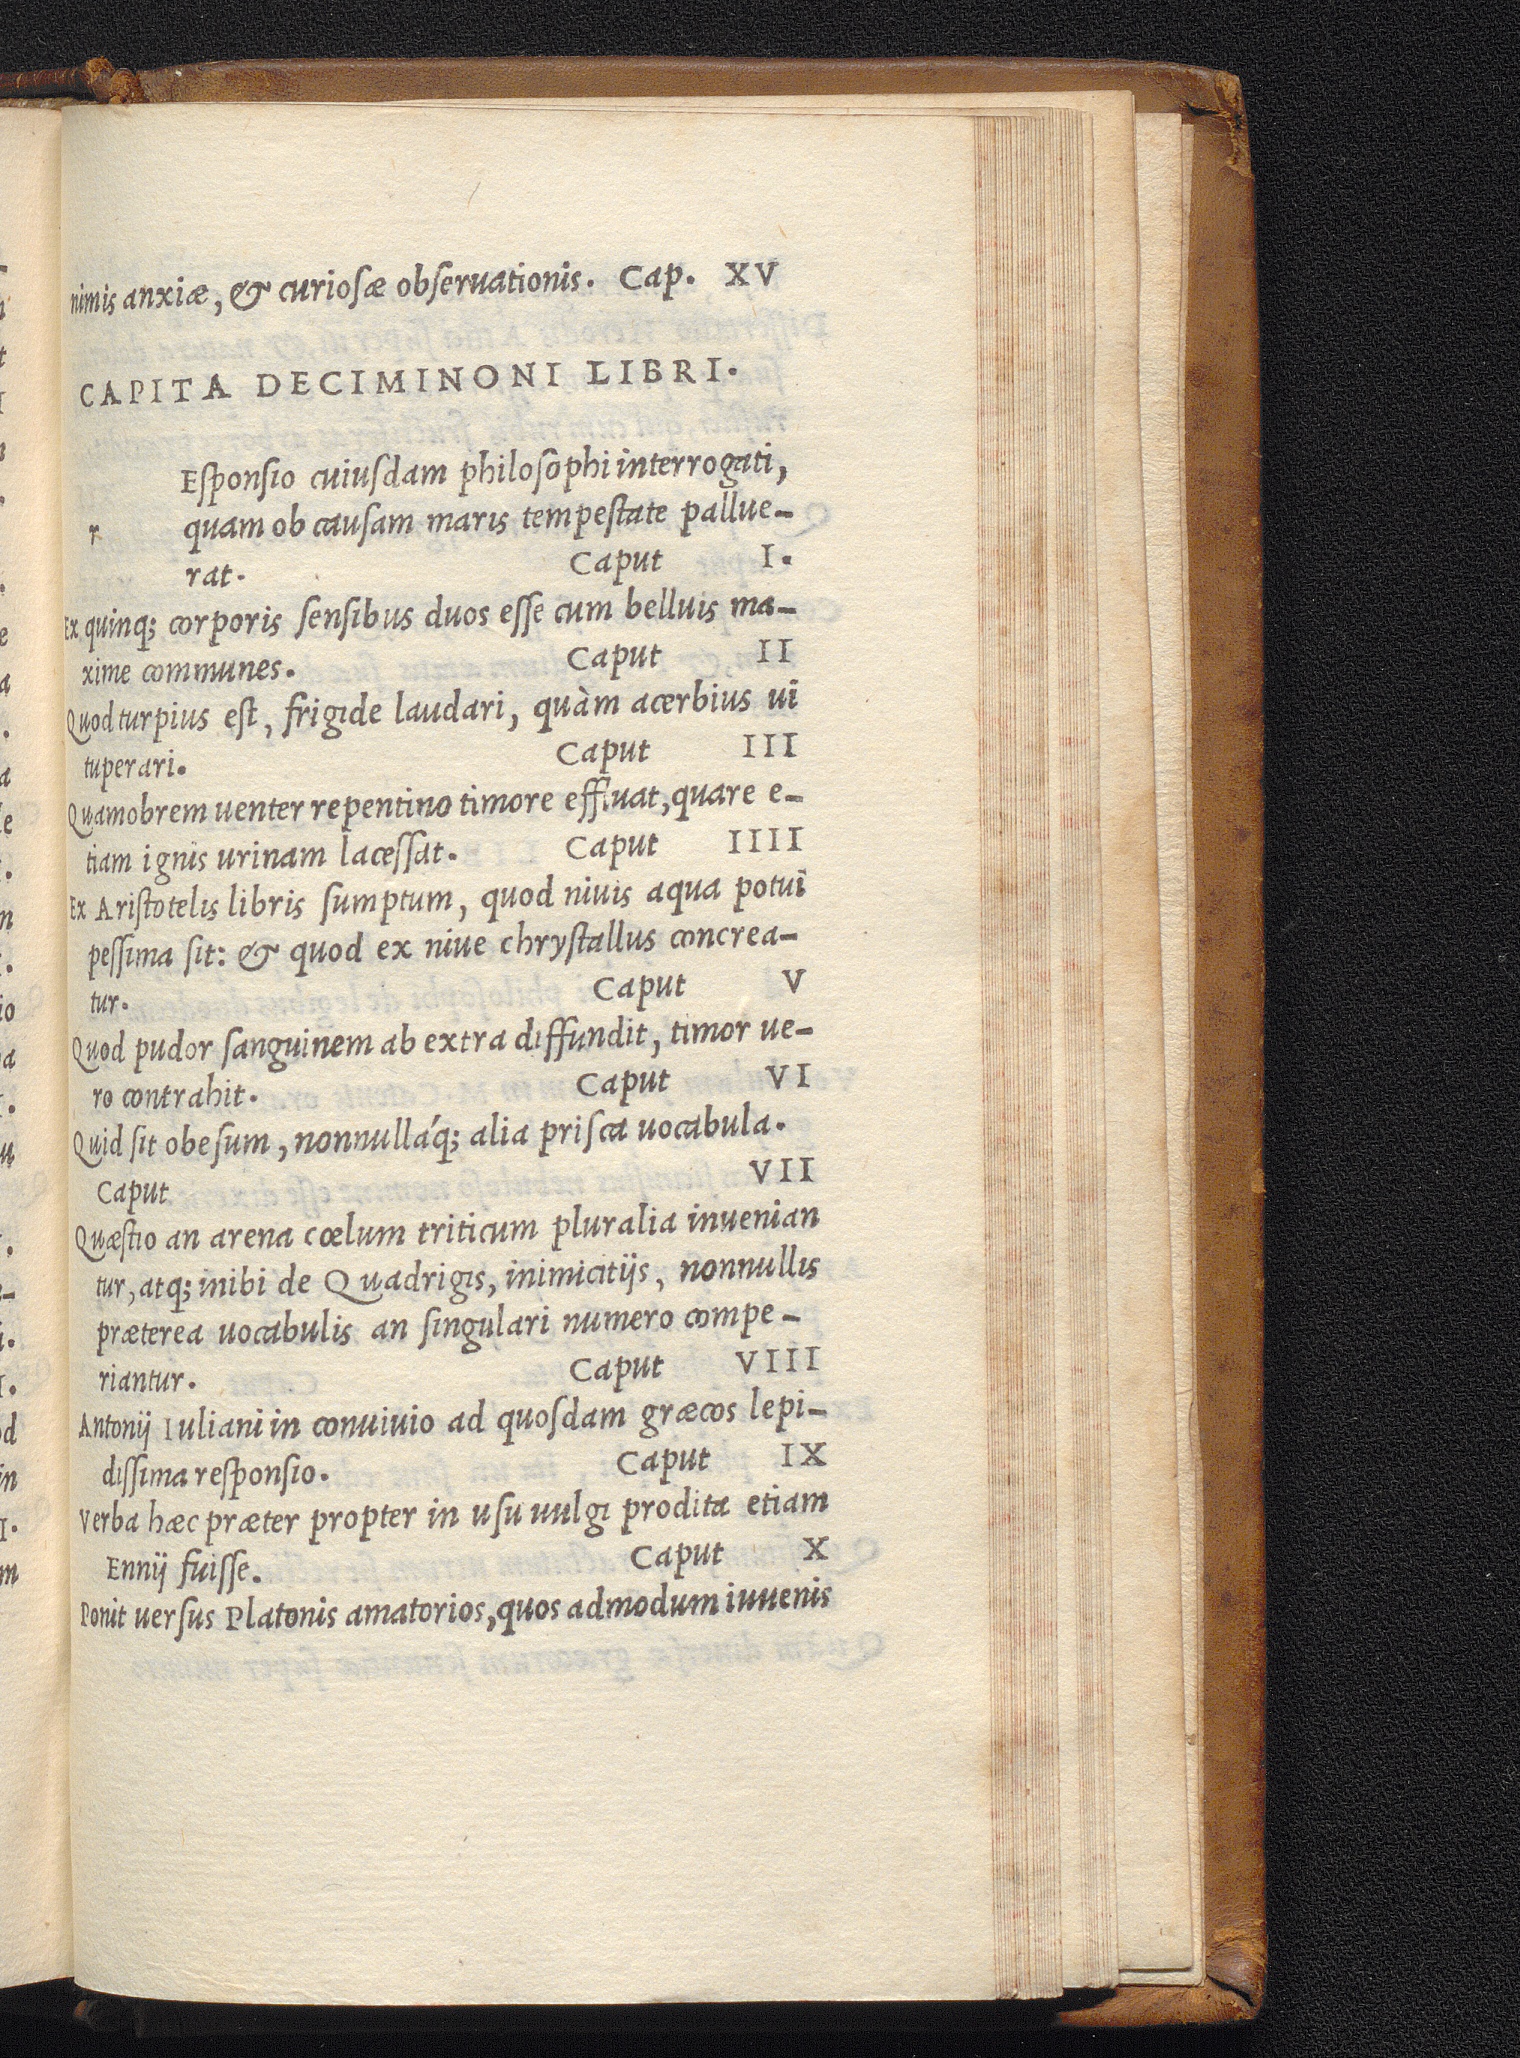 nimis anxiæ, & curiosæ obseruationis. Cap. XV
CAPITA DECIMINONI LIBRI.
r
Esponsio cuiusdam philosophi interrogati,
quam ob causam maris tempestate pallue-
rat. Caput I.
Ex quinq; corporis sensibus duos esse cum belluis ma-
xime communes. Caput II
Quod turpius est, frigide laudari, quàm acerbius uī
tuperari. Caput III
Quamobrem uenter repentino timore effluat, quare e-
tiam ignis urinam lacessat. Caput IIII
Ex Aristotelis libris sumptum, quod niuis aqua potuī
pessima sit: & quod ex niue chrystallus concrea-
tur. Caput V
Quod pudor sanguinem ab extra diffundit, timor ue-
ro contrahit. Caput VI
Quid sit obesum, nonnulláq; alia prisca uocabula.
Caput VII
Quæstio an arena cœlum triticum pluralia inuenian
tur, atq; inibi de Quadrigis, inimicitijs, nonnullis
præterea uocabulis an singulari numero compe-
riantur. Caput VIII
Antonij Iuliani in conuiuio ad quosdam græcos lepi-
dissima responsio. Caput IX
Verba hæc præter propter in usu uulgi prodita etiam
Ennij fuisse. Caput X
Ponit uersus Platonis amatorios, quos admodum iuuenis